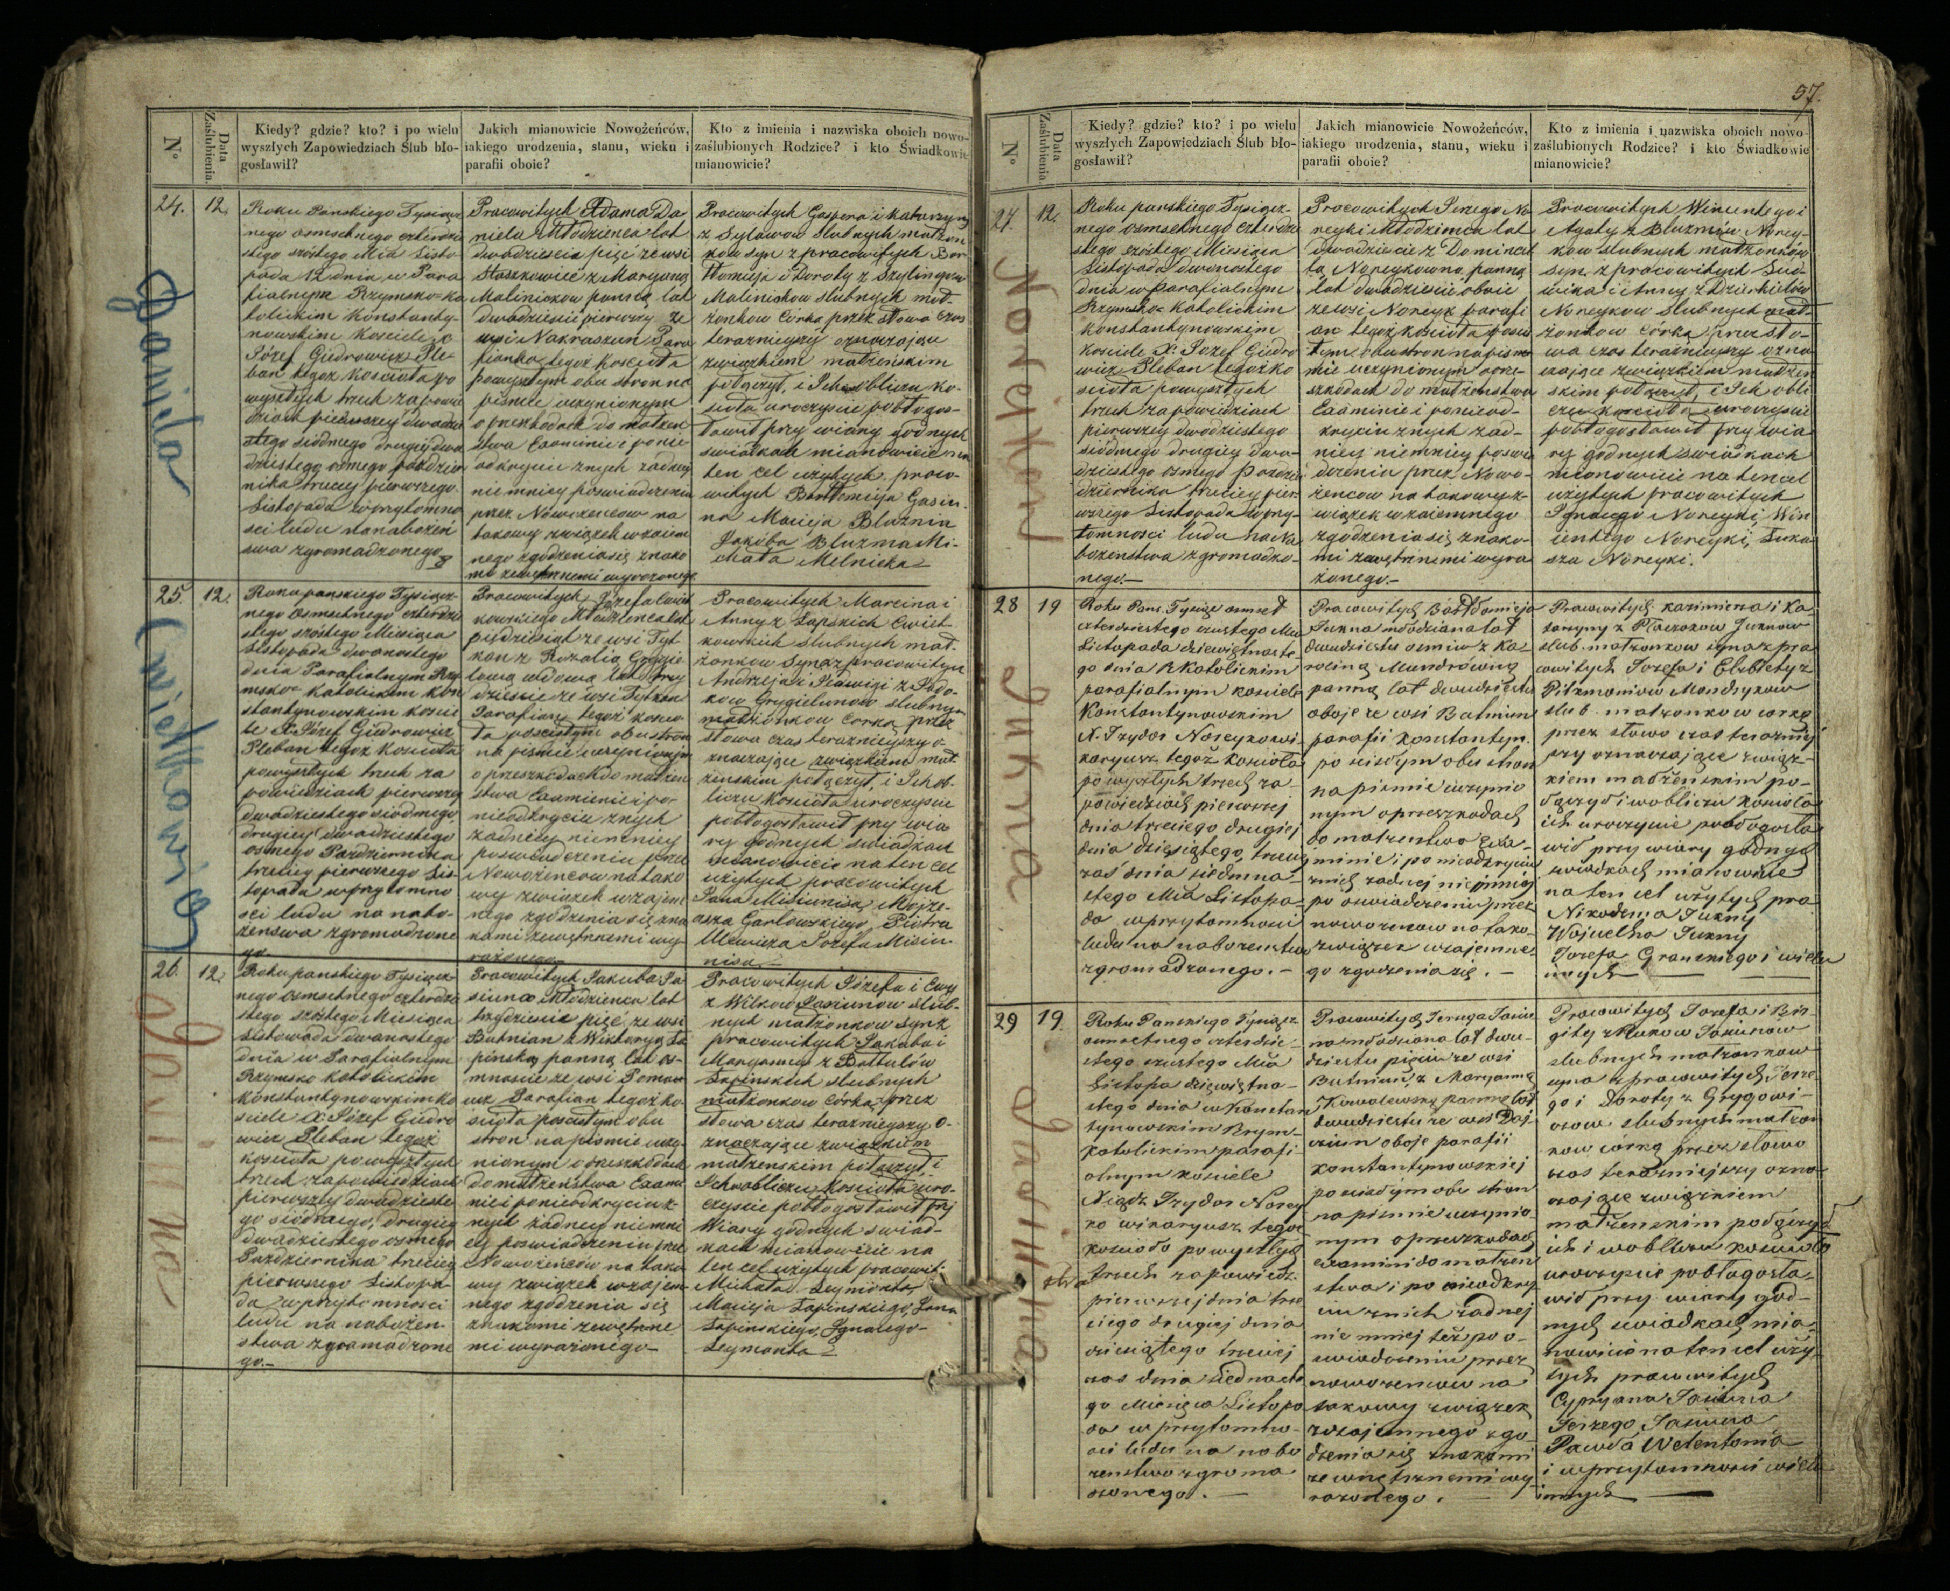 57.
N°
Data Zaślubienia.
Kiedy? gdzie? kto? i po wielu
wyszłych Zapowiedziach Ślub bło-
gosławił?
Jakich mianowicie Nowożeńców,
iakiego urodzenia, stanu, wieku i
parafii oboie?
Kto z imienia i nazwiska oboich nowo-
zaślubionych Rodzice? i kto Świadkowie
mianowicie?
24.
12.
Roku Panskiego Tysiącz
nego osmsetnego czterdzie
stego szóstego Mca Listo
pada 12 dnia w Para
fialnym Rzymsko-ka
tolickim Konstanty-
nowskim Kosciele X
Józef Giedrowicz Ple
ban tegoż Koscioła po
wyszłych trzech zapowie
dziach pierwszey dwudzie
stego siódmego drugiey dwu
dziestego osmego Paździer
nika trzeciey pierwszego
Listopada w przytomno
sci ludu na nabożeń
stwa zgromadzonego
Pracowitych Adama Da
niela Młodzienca lat
dwadziescia pięć ze wsi
Staszkowicz z Maryaną
Maliniczow panną lat
dwadziescie pierwszy ze
wsi Nakraszun Para
fianka tegoż Kosciola
powyszłym obu stron na
piśmie uczynionym
o przeszkodach do małżeń
stwa Examinie i ponie
odkryciu żnych żadney
niemniey poswiadczeniu
przez Nowożencow na
takowy związek wzaiem
nego zgodzenia się znako
mi zewnętrznemi wyrażonego
Pracowitych Gaspera i Katarzyny
z Sylawow slubnych małżon
kow syn z pracowitych Bar
tłomieja i Doroty z Szylingow
Maliniczow slubnych mał
żonkow Corką przez słowa czas
teraznieyszy oznaczające
związkiem małżenskim
połączył, i Ich w obliczu Ko-
scioła uroczyscie pobłogos-
ławił przy wiary godnych
swiadkach mianowicie na
ten cel użytych praco-
witych Bartłomieja Gasiu
na Macieja Bluzma
Jakóba Bluzma Mi-
chała Melnicka
Daniela
25.
12.
Roku panskiego Tysiącz-
nego osmsetnego czterdzie
stego szóstego Miesiąca
Listopada dwunastego
dnia Parafialnym Rzy
msko-katolickim Kon
stantynowskim Koscie
le X. Józef Giedrowicz
Pleban tegoż Kościoła
powyszłych trzech za
powiedziach pierwszey
dwudziestego siódmego
drugiey dwudziestego
osmego Pazdziernika
trzeciey pierwszego Lis-
topada w przytomno
sci ludu na nabo-
żenswa zgromadzone
go.
Pracowitych Józefa Cwiet
kowskiego Młodzienca lat
pięćdziesiąt ze wsi Tyt
kan z Rozalią Grygie
lową wdową lat trzy
dziescie ze wsi Tytkan
Parafiany tegoż koscio
ła poscisłym obu stron
na pismie uczynionym
o przeszkodach do małżeń
stwa Examinie i po-
nieodkryciu żnych
żadney niemniey
poswiadczeniu przez
Nowożencow na tako
wy związek wzaiem
nego zgodzenia się zna
kami zewnętrznemi wy-
rażonego
Pracowitych Marcina i
Anny z Łapskich Cwiet-
kowskich slubnych mał-
żonkow Syna z pracowitych
Andrzeja i Jadwigi z Podo-
kow Grygielunow slubnych
małżonkow Corką przez
słowa czas teraznieyszy o-
znaczające związkiem mał-
żenskim połączył, i Ich ob-
liczu Kosciola uroczyscie
pobłogosławił przy wia
ry godnych swiadkach
mianowicie na ten cel
użytych pracowitych
Jana Misiunisa, Mojże-
asza Garlowskiego, Piotra
Ulewicza Józefa Misiu-
nisa
Cwiatkowski
26.
12.
Roku panskiego Tysiącz-
nego osmsetnego czterdzie
stego szóstego Miesiąca
Listopada dwunastego
dnia w Parafialnym
Rzymsko katolickim
Konstantynowskim ko
sciele X. Józef Giedro
wicz Pleban tegoż
Kosciola powyszłych
trzech zapowiedziach
pierwszey dwudzieste
go siódmego, drugiey
dwudziestego osmego
Pazdziernika trzeciey
pierwszego Listopa-
da w przytomnosci
ludu na nabożen-
stwa zgromadzone
go.-
Pracowitych Jakuba Ja
siuna Młodzienca lat
trzydziescie pięć ze wsi
Butnian z Wiktoryą Ła
pinską panną lat os-
mnascie ze wsi Pomar
ucz Parafian tegoż ko
scioła poscisłym obu
stron na pismie uczy-
nionym o przeszkodach
do małżeństwa Exami
nie i ponieodkryciu ż-
nych żadney niemni
ey poswiadczeniu przez
Nowożeńców na tako
wy związek wzajem
nego zgodzenia się
znakami zewnętrzne
mi wyrażonego
Pracowitych Józefa i Ewy
z Wilkow Jasiunow slub-
nych małżonkow Syn z
pracowitych Jakuba i
Maryanny z Battulów
Łapinskich slubnych
małżonkow Córką przez
słowa czas teraznieyszy o-
znaczające związkiem
małżenskim połączył, i
Ich w obliczu Kosciola uro-
czyscie pobłogosławił przy
Wiary godnych swiad-
kach mianowicie na
ten cel użytych pracowit:
Michała Szymonta,
Macieja Łapinskiego, Jana
Łapinskiego, Ignacego
Szymonta
Jasiuna
27.
12.
Roku panskiego Tysiącz-
nego osmsetnego czterdzie
stego szóstego Miesiąca
Listopada dwunastego
dnia w Parafialnym
Rzymsko-Katolickim
Konstantynowskim
Kosciele X. Józef Giedro
wicz Pleban tegoż ko
scioła powyszłych
trzech zapowiedziach
pierwszey dwudziestego
siódmego drugiey dwu-
dziestego osmego Pazdzi-
dziernika trzeciey pier
wszego Listopada w przy-
tomnosci ludu na Na
bozenstwa zgromadzo-
nego.-
Pracowitych Jerzego No
reyki Młodzienca lat
dwadziescie z Domince
lą Noreykowną panną
lat dwadziescie oboie
ze wsi Noreyk parafi
an tegoż kościoła poscis
łym obu stron na pism
mie uczynionym o prze-
szkodach do małżenstwa
Examinie i ponieod-
kryciu żnych żad-
niey niemniey poswia
dczeniu przez Nowo-
żencow na takowy z-
wiązek wzaiemnego
zgodzenia się znako-
mi zewnętrznemi wyra
żonego.-
Pracowitych Wincentego i
Agaty z Bluzmow Norey-
kow slubnych małżonków
syn z pracowitych Lud
wika i Anny z Dzierkielow
Noreykow slubnych mał-
żonkow Córką przez sło-
wa czas teraznieyszy ozna
czające związkiem małżeń
skim połączył, i Ich obli
czu kosciola uroczyscie
pobłogosławił przy wia
ry godnych swiadkach
mianowicie na ten cel
użytych pracowitych
Ignacego Noreyki, Win
centego Noreyki, Łuka
sza Noreyki.
Norejkow
28
19
Roku Pans. Tysiąc osmset
czterdziestego szustego Mca
Listopada dziewiętnaste
go dnia R Katolickim
parafialnym kosciele
Konstantynowskim
X. Izydor Noreyko wi
karyusz tegoż kosciola
po wyszłych trzech za-
powiedziach pierwszej
dnia trzeciego drugiej
dnia dziesiątego, trzeciej
zaś dnia siedmna-
stego Mca Listopa-
da w przytomnosci
ludu na nabozenstwo
zgromadzonego.-
Pracowitych Bartłomieja
Jukna młodziana lat
dwudziestu osmiu z Ka
roliną Mundrowną
panną lat dwudziestu
oboje ze wsi Butnian
parafii Konstantyn.
po scisłym obu stron
na pismie uczynio
nym o przeszkodach
do małżenstwa Exa-
minie i po nieodkryciu
znich żadnej niemniej
po oswiadczeniu przez
nowożencow na tako-
zwiąek wzajemne-
go zgodzenia się.-
Pracowitych Kazimierza i Ka
tarzyny z Ptaszkow Juknow
slub. małżonkow syna z pra
cowitych Jozefa i Elżbiety z
Pitzmaniow Mondrzkow
slub. małżonkow corkę
przez słowo czas teraźniej
szy oznaczające związ-
kiem małżenskim po-
łączył i w obliczu kosciola
ich uroczyscie pobłogosła
wił przy wiary godnych
swiadkach mianowicie
na ten cel użytych pra
Nikodema Jukny
Wojciecha Jukny
Jozefa Granckiego i wielu
innych
Jukna
29
19
Roku Panskiego Tysiącz
osmsetnego czterdzie-
stego szustego Mca
Listopa dziewiętna-
stego dnia w Konstan
tynowskim Rzym-
Katolickim parafi-
alnym kosciele
Xiądz Izydor Norey
ko wikaryusz tegoż
kosciola powyszłych
trzech zapowiedz.
pierwszej dnia trze
ciego drugiej dnia
dziesiątego trzeciej
zas dnia siedmaste
go Miesięca Listopa
da w przytomno-
sci ludu na nabo
zenstwo zgroma
dzonego.-
Pracowitych Jerzego Jasiu
na młodziana lat dwu-
dziestu pięciu ze wsi
Butnian, z Maryanną
Kowalewską panną lat
dwudziestu ze wsi Daj
cziun oboje parafii
Konstantynowskiej
po scisłym obu stron
na pismie uczynio-
nym o przeszkodach
Examini do małżen
stwa i po nieodkry
ciu znich żadnej
nie mniej też po o-
swiadczeniu przez
nowożencow na
takowy związek
wzajemnego zgo-
dzenia się znakami
zewnętrznemi wy-
rażonego.
Pracowitych Jozefa i Bry-
gity z Kukow Jasiunow
slubnych małżonkow
syna z pracowitych Jerze
go i Doroty z Grygowi-
czow slubnych małżon
kow corką przez słowo
czas teraźniejszy ozna-
czające związkiem
małżenskim połączył
ich i w obliczu kosciola
uroczyscie pobłogosła-
wił przy wiary god-
nych swiadkach mia-
nowicie na ten cel uży-
tych pracowitych
Cypryana Jasiuna
Jerzego Jasiuna
Pawła Wetentonia
i w przytomnosci wielu
innych
Jasiuna